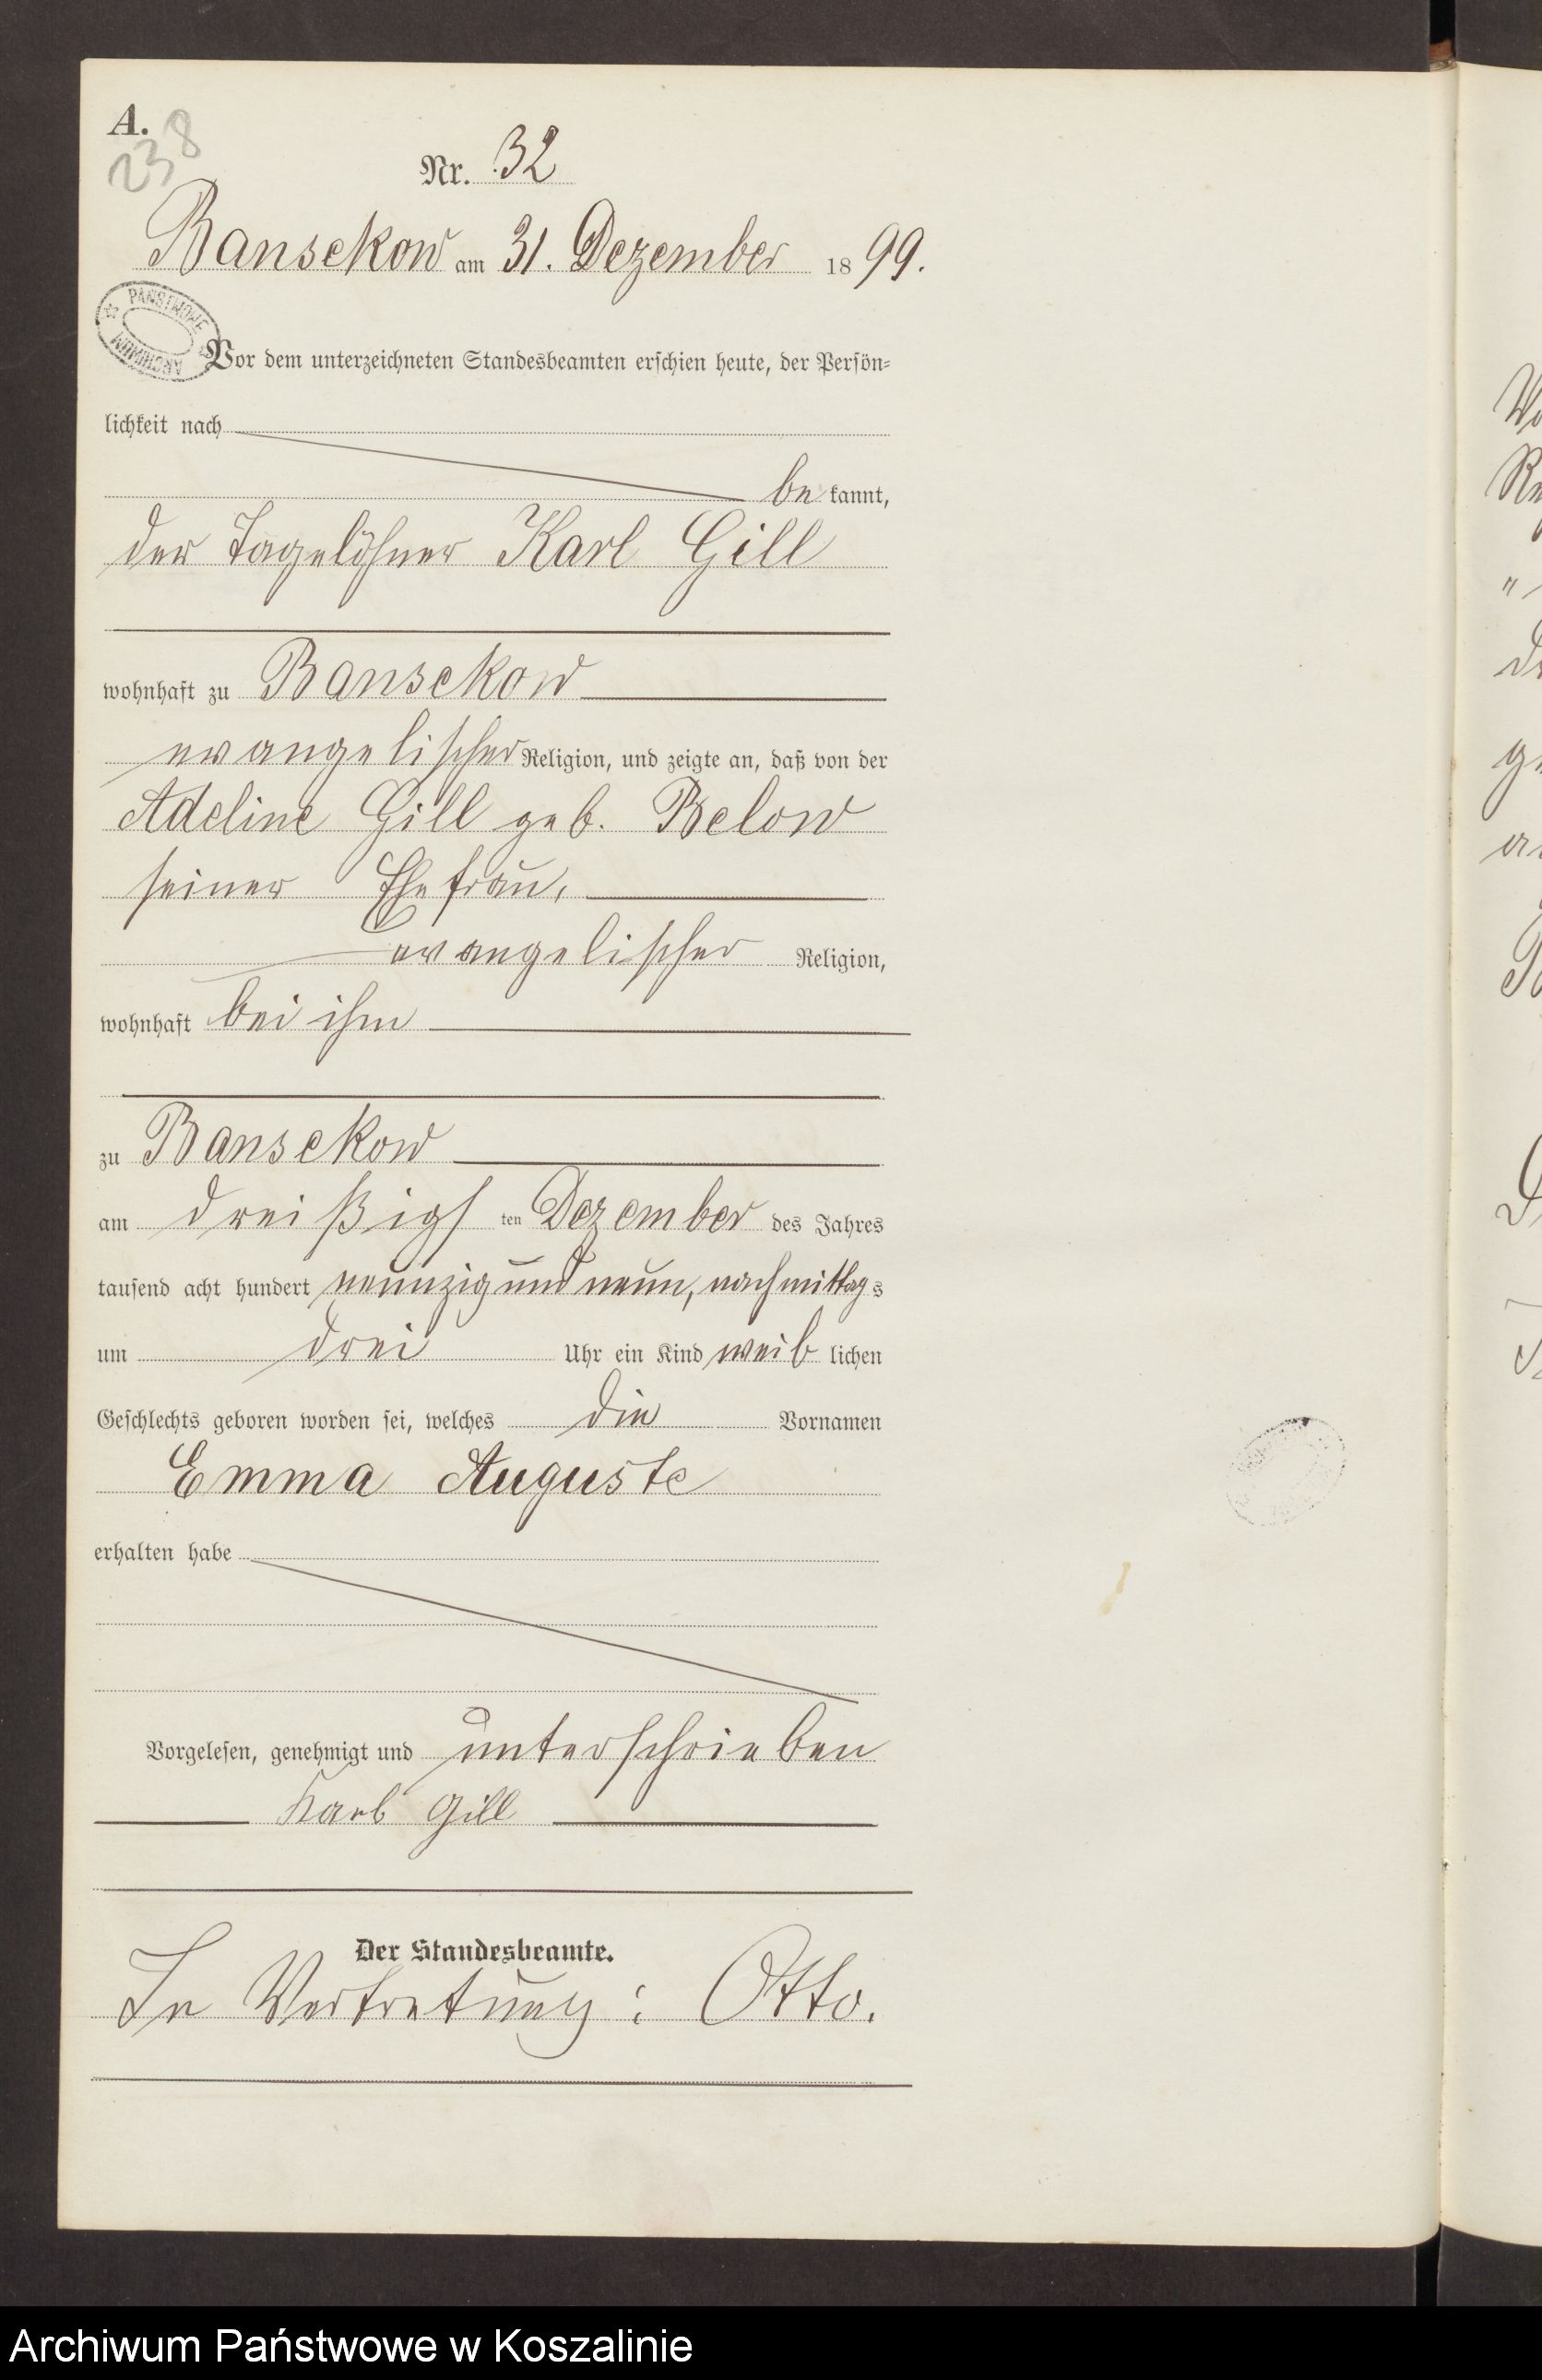 A.
238
Nr. 32
Bansekow am 31. Dezember 1899.
PAŃSTWOWE ARCHIWUM
Vor dem unterzeichneten Standesbeamten erschien heute, der Persön=
lichkeit nach
bekannt,
der Tagelöhner Karl Gill
wohnhaft zu Bansekow
evangelischer Religion, und zeigte an, daß von der
Adeline Gill geb. Below
seiner Ehefrau,
evangelischer Religion,
wohnhaft bei ihm
zu Bansekow
am dreißigsten Dezember des Jahres
tausend acht hundert neunzig und neun, nachmittags
um drei Uhr ein Kind weiblichen
Geschlechts geboren worden sei, welches die Vornamen
Emma Auguste
erhalten habe
Vorgelesen, genehmigt und unterschrieben
Karl Gill
Der Standesbeamte.
In Vertretung: Otto.
Archiwum Państwowe w Koszalinie